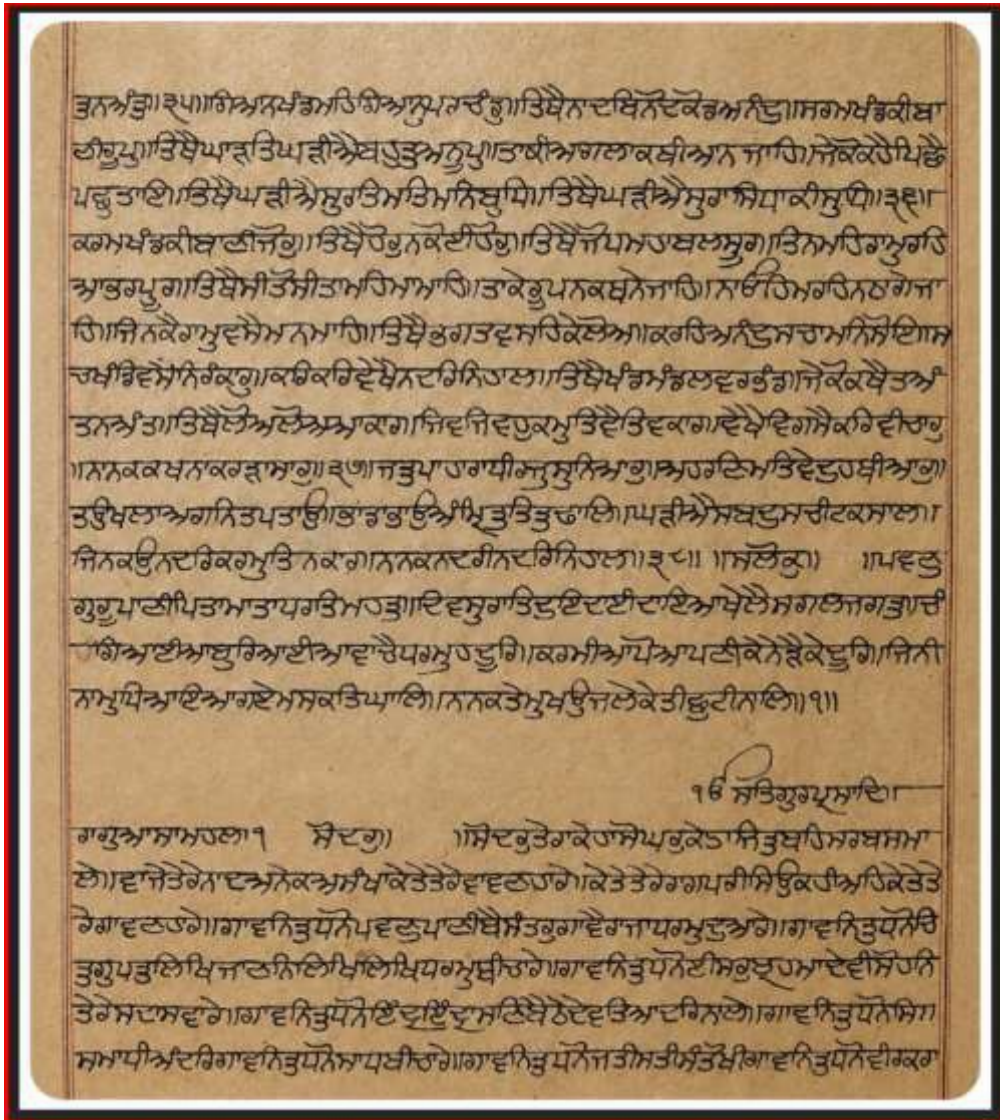 ਤੁਨਅੰਤੁ॥੩੫॥ਗਿਆਨਖੰਡਮਹਿਗਿਆਨੁਪਰਚੰਡੁ॥ਤਿਥੈਨਾਦਬਿਨੋਦਕੋਡਅਨੰਦੁ॥ਸਰਮਖੰਡਕੀਬਾ
ਣੀਰੂਪੁ॥ਤਿਥੈਘਾੜਤਿਘੜੀਐਬਹੁਤੁਅਨੂਪੁ॥ਤਾਕੀਆਗਲਾਕਥੀਆਨਜਾਹਿ॥ਜੇਕੋਕਹੈਪਿਛੈ
ਪਛੁਤਾਇ॥ਤਿਥੈਘੜੀਐਸੁਰਤਿਮਤਿਮਨਿਬੁਧਿ॥ਤਿਥੈਘੜੀਐਸੁਰਾਸਿਧਾਕੀਸੁਧਿ॥੩੬॥
ਕਰਮਖੰਡਕੀਬਾਣੀਜੋਰੁ॥ਤਿਥੈਹੋਰੁਨਕੋਈਹੋਰੁ॥ਤਿਥੈਜੋਧਮਹਾਬਲਸੂਰ॥ਤਿਨਮਹਿਰਾਮੁਰਹਿ
ਆਭਰਪੂਰ॥ਤਿਥੈਸੀਤੋਸੀਤਾਮਹਿਮਾਮਾਹਿ॥ਤਾਕੇਰੂਪਨਕਥਨੇਜਾਹਿ॥ਨਾਓਹਿਮਰਹਿਨਠਾਗੇਜਾ
ਹਿ॥ਜਿਨਕੈਰਾਮੁਵਸੈਮਨਮਾਹਿ॥ਤਿਥੈਭਗਤਵਸਹਿਕੇਲੋਅ॥ਕਰਹਿਅਨੰਦੁਸਚਾਮਨਿਸੋਇ॥ਸ
ਚਖੰਡਿਵਸੈਨਿਰੰਕਾਰੁ॥ਕਰਿਕਰਿਵੇਖੈਨਦਰਿਨਿਹਾਲ॥ਤਿਥੈਖੰਡਮੰਡਲਵਰਭੰਡ॥ਜੇਕੋਕਥੈਤਅੰ
ਤਨਅੰਤ॥ਤਿਥੈਲੋਅਲੋਅਆਕਾਰ॥ਜਿਵਜਿਵਹੁਕਮੁਤਿਵੈਤਿਵਕਾਰ॥ਵੇਖੈਵਿਗਸੈਕਰਿਵੀਚਾਰੁ
॥ਨਾਨਕਕਥਨਾਕਰੜਾਸਾਰੁ॥੩੭॥ਜਤੁਪਾਹਾਰਾਧੀਰਜੁਸੁਨਿਆਰੁ॥ਅਹਰਣਿਮਤਿਵੇਦੁਹਥੀਆਰੁ॥
ਤਉਖਲਾਅਗਨਿਤਪਤਾਉ॥ਭਾਂਡਾਭਾਉਅੰਮ੍ਰਿਤੁਤਿਤੁਢਾਲਿ॥ਘੜੀਐਸਬਦੁਸਚੀਟਕਸਾਲ॥
ਜਿਨਕਉਨਦਰਿਕਰਮੁਤਿਨਕਾਰ॥ਨਾਨਕਨਦਰੀਨਦਰਿਨਿਹਾਲ॥੩੮॥ ॥ਸਲੋਕੁ॥ ॥ਪਵਣੁ
ਗੁਰੂਪਾਣੀਪਿਤਾਮਾਤਾਧਰਤਿਮਹਤੁ॥ਦਿਵਸੁਰਾਤਿਦੁਇਦਾਈਦਾਇਆਖੇਲੈਸਗਲਜਗਤੁ॥ਚੰ
ਗਿਆਈਆਬੁਰਿਆਈਆਵਾਚੈਧਰਮੁਹਦੂਰਿ॥ਕਰਮੀਆਪੋਆਪਣੀਕੇਨੇੜੈਕੇਦੂਰਿ॥ਜਿਨੀ
ਨਾਮੁਧਿਆਇਆਗਏਮਸਕਤਿਘਾਲਿ॥ਨਾਨਕਤੇਮੁਖਉਜਲੇਕੇਤੀਛੁਟੀਨਾਲਿ॥੧॥
ੴਸਤਿਗੁਰਪ੍ਰਸਾਦਿ॥
ਰਾਗੁਆਸਾਮਹਲਾ੧ ਸੋਦਰੁ॥ ॥ਸੋਦਰੁਤੇਰਾਕੇਹਾਸੋਘਰੁਕੇਹਾਜਿਤੁਬਹਿਸਰਬਸਮਾ
ਲੇ॥ਵਾਜੇਤੇਰੇਨਾਦਅਨੇਕਅਸੰਖਾਕੇਤੇਤੇਰੇਵਾਵਣਹਾਰੇ॥ਕੇਤੇਤੇਰੇਰਾਗਪਰੀਸਿਉਕਹੀਅਹਿਕੇਤੇਤੇ
ਰੇਗਾਵਣਹਾਰੇ॥ਗਾਵਨਿਤੁਧਨੋਪਵਣੁਪਾਣੀਬੈਸੰਤਰੁਗਾਵੈਰਾਜਾਧਰਮੁਦੁਆਰੇ॥ਗਾਵਨਿਤੁਧਨੋਚਿ
ਤੁਗੁਪਤੁਲਿਖਿਜਾਣਨਿਲਿਖਿਲਿਖਿਧਰਮੁਬੀਚਾਰੇ॥ਗਾਵਨਿਤੁਧਨੋਈਸਰੁਬ੍ਰਹਮਾਦੇਵੀਸੋਹਨਿ
ਤੇਰੇਸਦਾਸਵਾਰੇ॥ਗਾਵਨਿਤੁਧਨੋਇੰਦ੍ਰਇੰਦ੍ਰਾਸਣਿਬੈਠੇਦੇਵਤਿਆਦਰਿਨਾਲੇ॥ਗਾਵਨਿਤੁਧਨੋਸਿਧ
ਸਮਾਧੀਅੰਦਰਿਗਾਵਨਿਤੁਧਨੋਸਾਧਬੀਚਾਰੇ॥ਗਾਵਨਿਤੁਧਨੋਜਤੀਸਤੀਸੰਤੋਖੀਗਾਵਨਿਤੁਧਨੋਵੀਰਕਰਾ